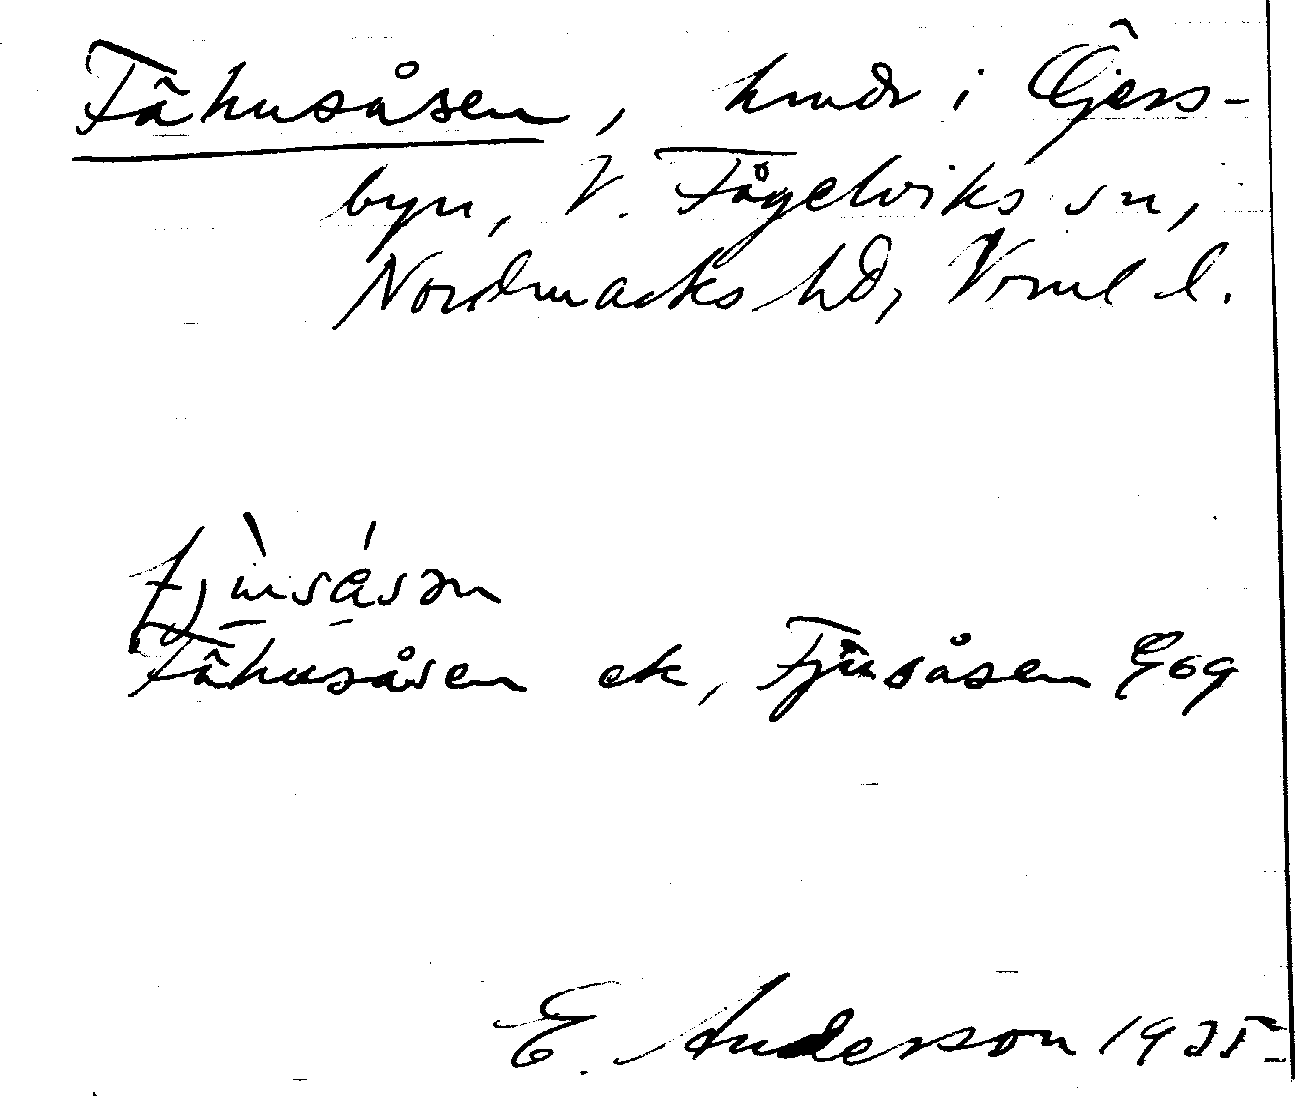 Fähusåsen, hmdr i Öjers-
byn, V. Fågelviks sn,
Nordmarks hd, Vrml l.
fjùsásən
Fähusåsen ek, Fjusåsen Gog
E. Anderson 1925